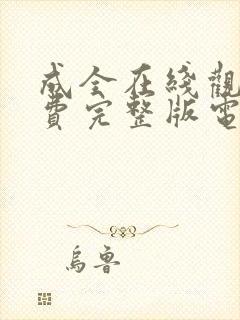 成全在綫觀
費完整版電
烏魯